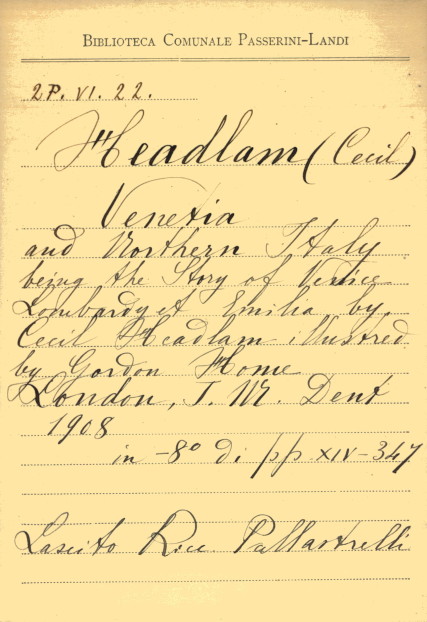 BIBLIOTECA COMUNALE PASSERINI-LANDI
2P. VI. 22.
Headlam (Cecil)
Venetia
and Northern Italy
being the Story of Venice
Lombardy et Emilia by
Cecil Headlam,
by Gordon Home
London, J. M. Dent
1908
in -8º di pp XIV-347
Lascito Pallastrelli